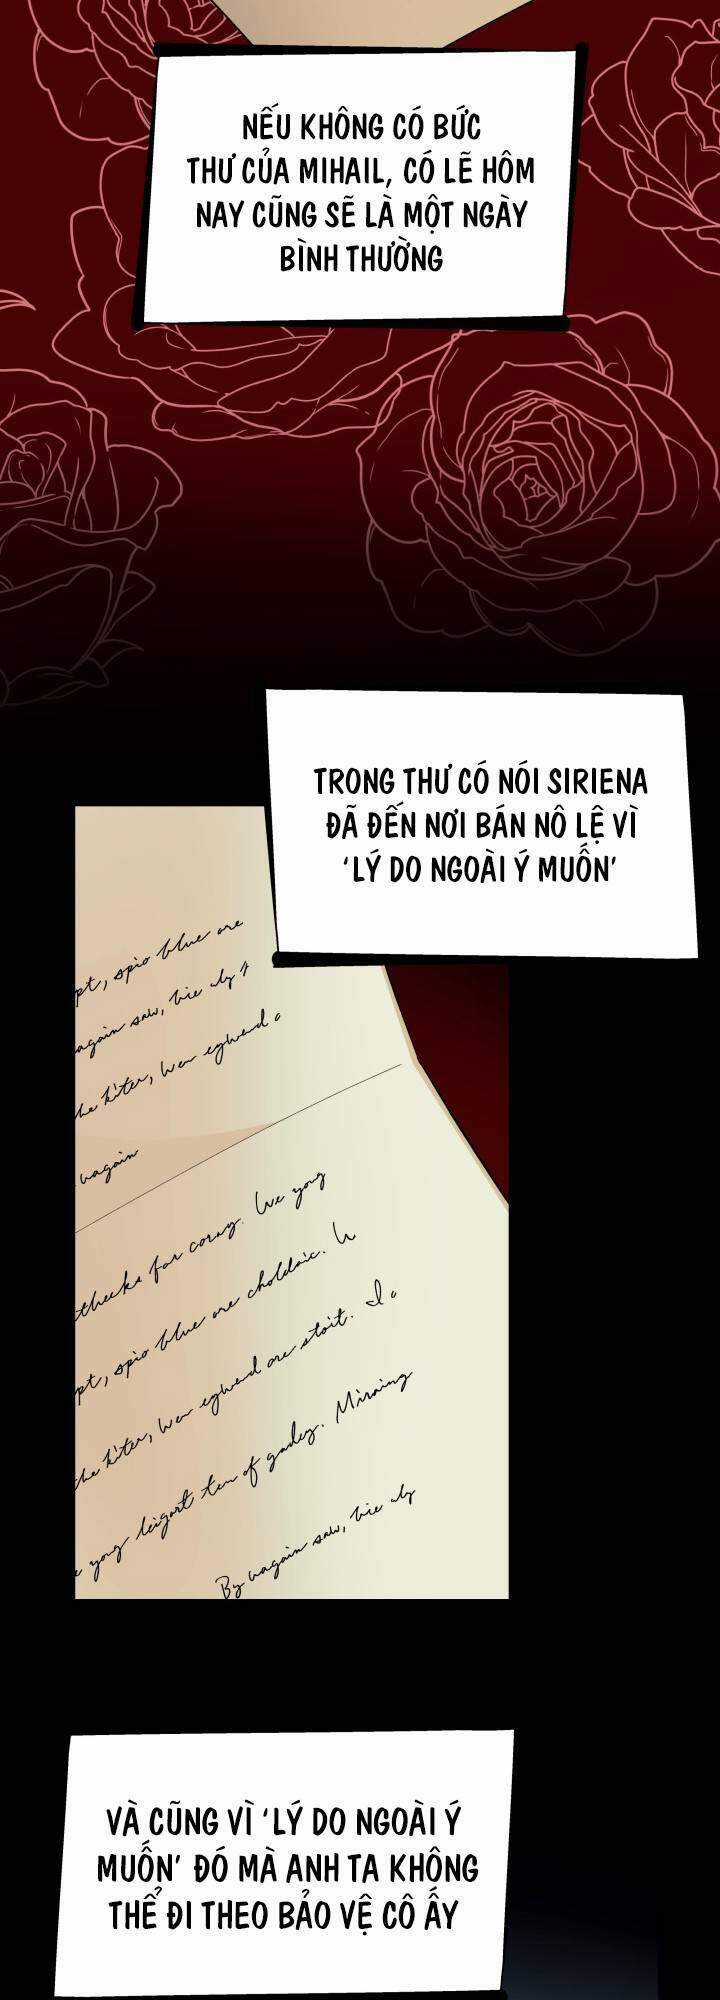 NẾU KHÔNG CÓ BỨC
THƯ CỦA MIHAIL, CÓ LẼ HÔM
NAY CŨNG SẼ LÀ MỘT NGÀY
BÌNH THƯỜNG
TRONG THƯ CÓ NÓI SIRIENA
ĐÃ ĐẾN NƠI BÁN NÔ LỆ VÌ
‘LÝ DO NGOÀI Ý MUỐN’
pt, spio blue ore
again saw, vie
he kiter, wen egwend
vagain
thecks far coray. We yong
pt, spio blue ore choldaic.
the kiter, wen egwend ore stoit.
yong leigart ten of gadey. Miraing
By vagain saw, vie
VÀ CŨNG VÌ ‘LÝ DO NGOÀI Ý
MUỐN’ ĐÓ MÀ ANH TA KHÔNG
THỂ ĐI THEO BẢO VỆ CÔ ẤY